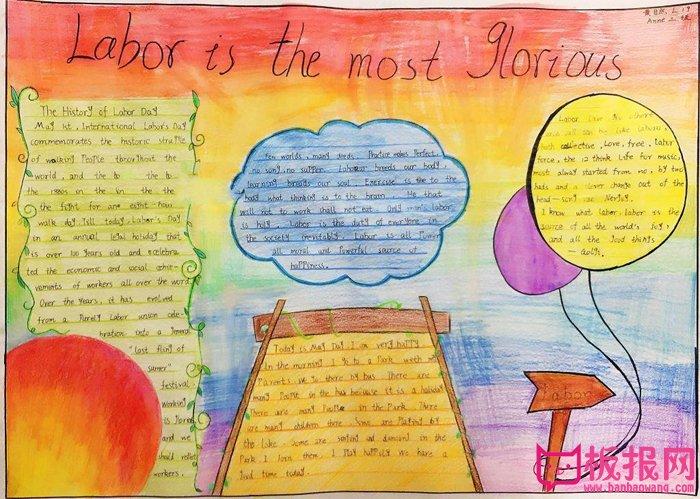 Labor is the most Glorious
Anne
The History of Labor Day
May 1st, International Labor's Day
commemorates the historic
of walking People throughout the
world, and the to the to
the 1880s in the in the the
the fight for an eight-hour
walk day. Till today, Labor's Day
is an annual legal holiday that
is over 100 years old and celebra
ted the economic and social achie-
vements of workers all over the word
Over the years, it has evolved
from a Purely Labor union cele
bration into a general
"last fling of
sumer"
festival
working
is
and we
should
workers.
words, many deeds. Practice makes Perfect.
no sung, no supper. Labour breeds our body
learning breeds our soul. Exercise is the to the
body what thinking is to the brain. He that
will not to work shall not eat. Only man's labor
is holy. Labor is the duty of everyone in
the society inevitably. Labor is all Power
all moral and Powerful source of
happiness.
Today is May Day I am very happy
In the morning I go to a Park with my
Parents we go there by bus There are
many People in the bus because it is a holiday
There are many People in the Park There
are many children there Some are Playing by
the lake Some are and dancing in the
Park I join them I Play happily We have a
good time today.
Labor, love
and all
both collective, Love, free, labor
force, the 12 think Life for music,
most always started from no, by two
hads and a clever change out of the
head
I know what labor: labor is the
source of all the world's joy
and all the good things
Labor
板报网
www.banbaowang.com